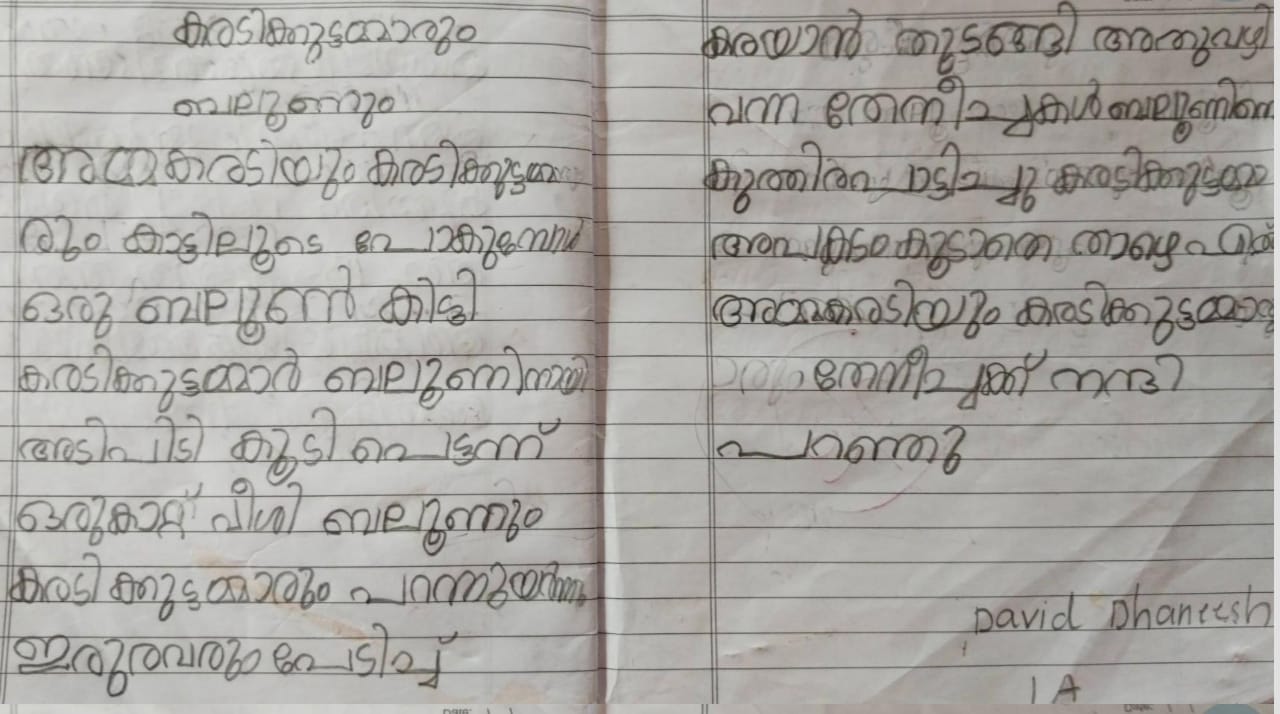 കരടിക്കുട്ടന്മാരും
ബലൂണും
അമ്മകരടിയും കരടിക്കുട്ടന്മാ
രും കാട്ടിലൂടെ പോകുമ്പോൾ
ഒരു ബലൂൺ കിട്ടി
കരടിക്കുട്ടന്മാർ ബലൂണിനായി
അടിപിടി കൂടി പെട്ടന്ന്
ഒരുകാറ്റ് വീശി ബലൂണും
കരടിക്കുട്ടന്മാരും പറന്നുയർന്നു
ഇരുവരും പേടിച്ച്
കരയാൻ തുടങ്ങി അതുവഴി
വന്ന തേനീച്ചകൾ ബലൂണിനെ
കുത്തി പൊട്ടിച്ചു കരടിക്കുട്ടന്മാ
അപകടം കൂടാതെ താഴെ
അമ്മകരടിയും കരടിക്കുട്ടന്മാരു
തേനീച്ചക്ക് നന്ദി
പറഞ്ഞു
David Dhaneesh
1 A